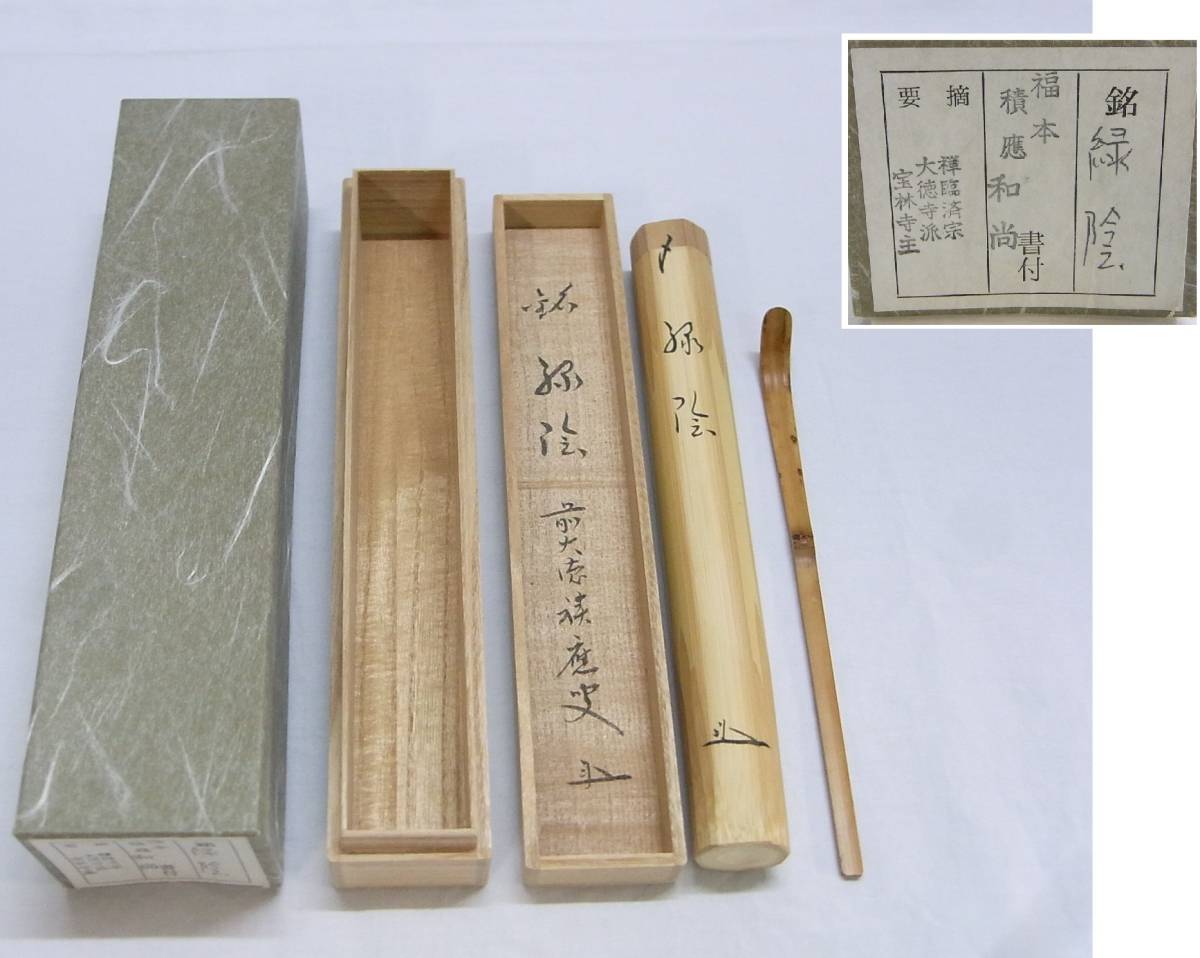 銘
緑陰
前大徳積應叟
〆
緑陰
銘
緑陰
福本
積應和尚
書付
摘要
禅臨済宗
大徳寺派
宝林寺主